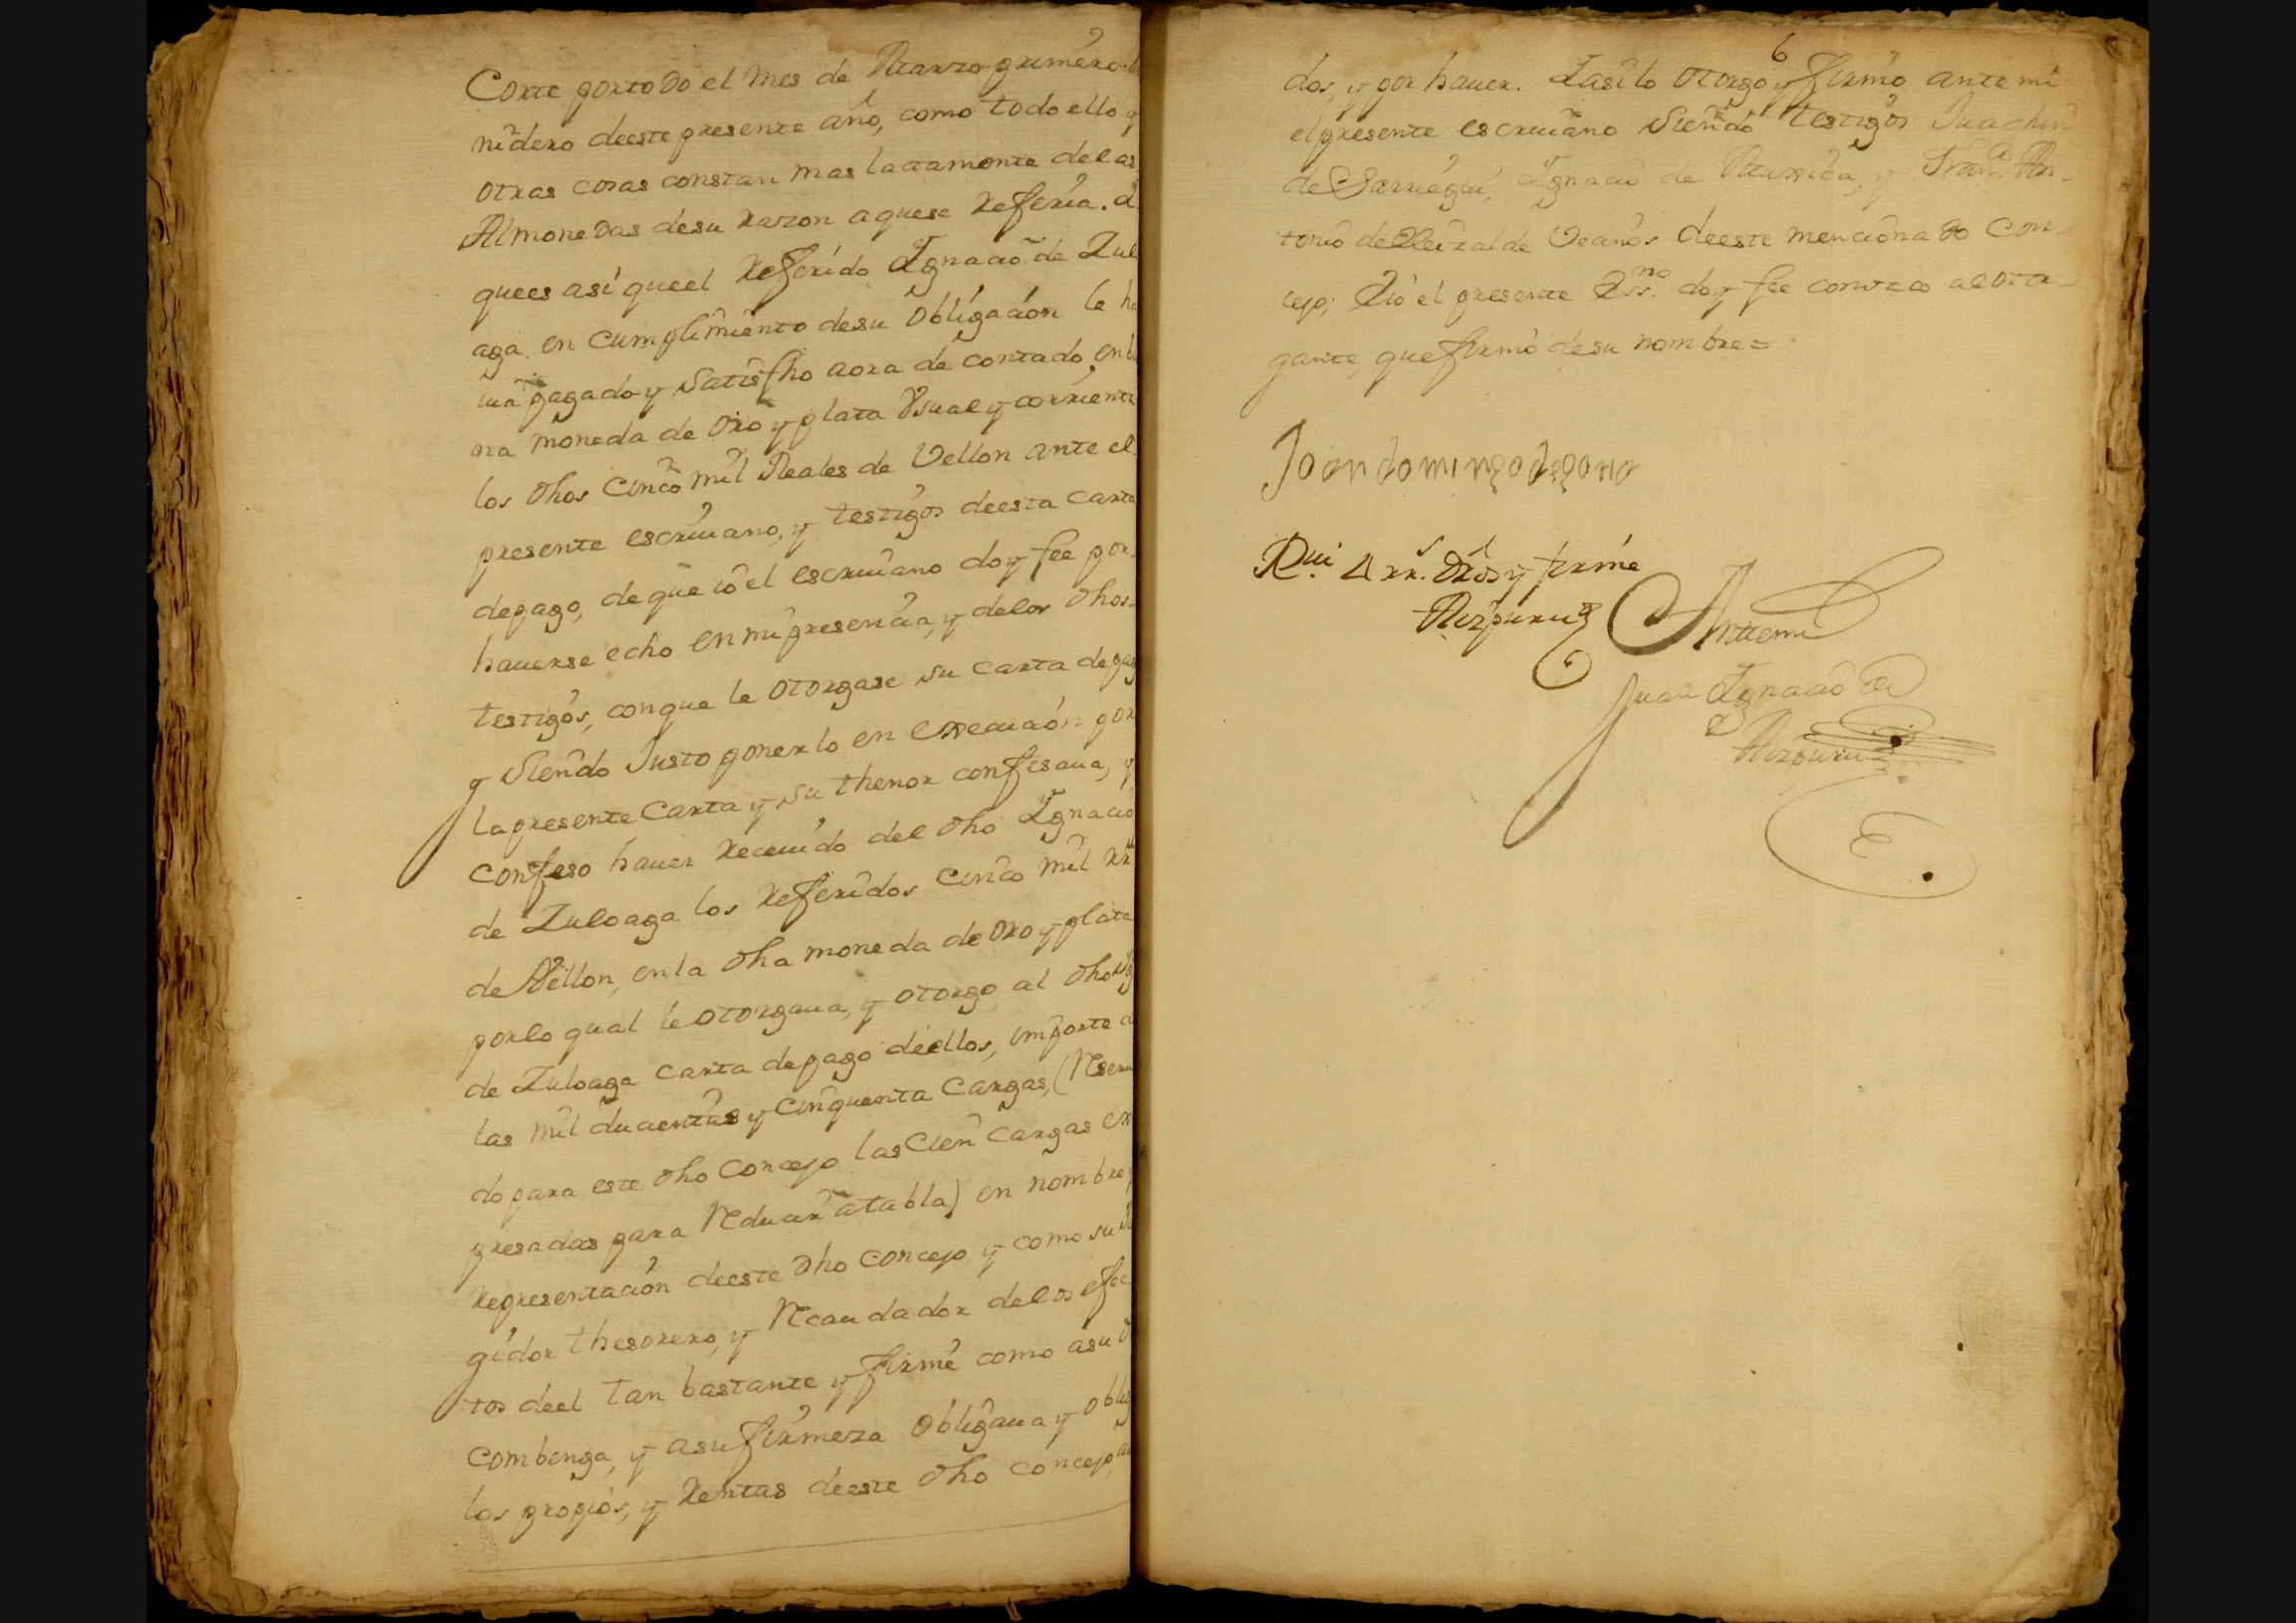 Corte por todo el mes de Marzo primero
nidero deeste presente año, como todo ello y
otras cosas constan mas lactamente delas
Almonedas desu razon aquese referia.
quees asi queel referido Ygnacio de Zul
aga en cumplimiento desu obligacion le ha
uia pagado y satisfho aora de contado, en bu
na moneda de oro y plata Vsual y corriente
los dhos cinco mil Reales de Vellon ante el
presente escriuano, y testigos deesta carta
depago, de que io el escriuano doy fee por
hauerse echo en mi presencia, y delos dhos
testigos, conque le otorgase su carta depag
y siendo Justo ponerlo en execucion por
la presente Carta y su thenor confesaua, y
confeso hauer receuido del dho Ygnacio
de Zuloaga los referidos cinco mil rr.
de Vellon, en la dha moneda de oro y plata
porlo qual le otorgaua, y otorgo al dho Yg
de Zuloaga carta depago deellos, importe d
las mil ducientas y cinquenta Cargas, (Reserua
do para este dho Concejo las Cien cargas ex
presadas para Reducir a tabla) en nombre y
representacion deeste dho concejo y como su Re
gidor thesorero, y Recaudador delos efec
tos deel tan bastante y firme como asu d
combenga, y asu firmeza obligaua y oblig
los propios, y Rentas deeste dho concejo, au
6
dos, y por hauer. Yasilo otorgo y firmo ante mi
elpresente escriuano siendo testigos Juachin
de Sarriegui, Ygnacio de Murrica, y Fran.co An-
tonio de Elcizalde Vecinos deeste mencionado Con-
cejo; Eio el presente Ess.no doy fee conozco alotor-
gante, que firmo desu nombre=
Joan domingo de gana
R.ui 4 rr.s dros y firme
Aizpuru
Antemi
Juan Ygnacio de
Aizpuru